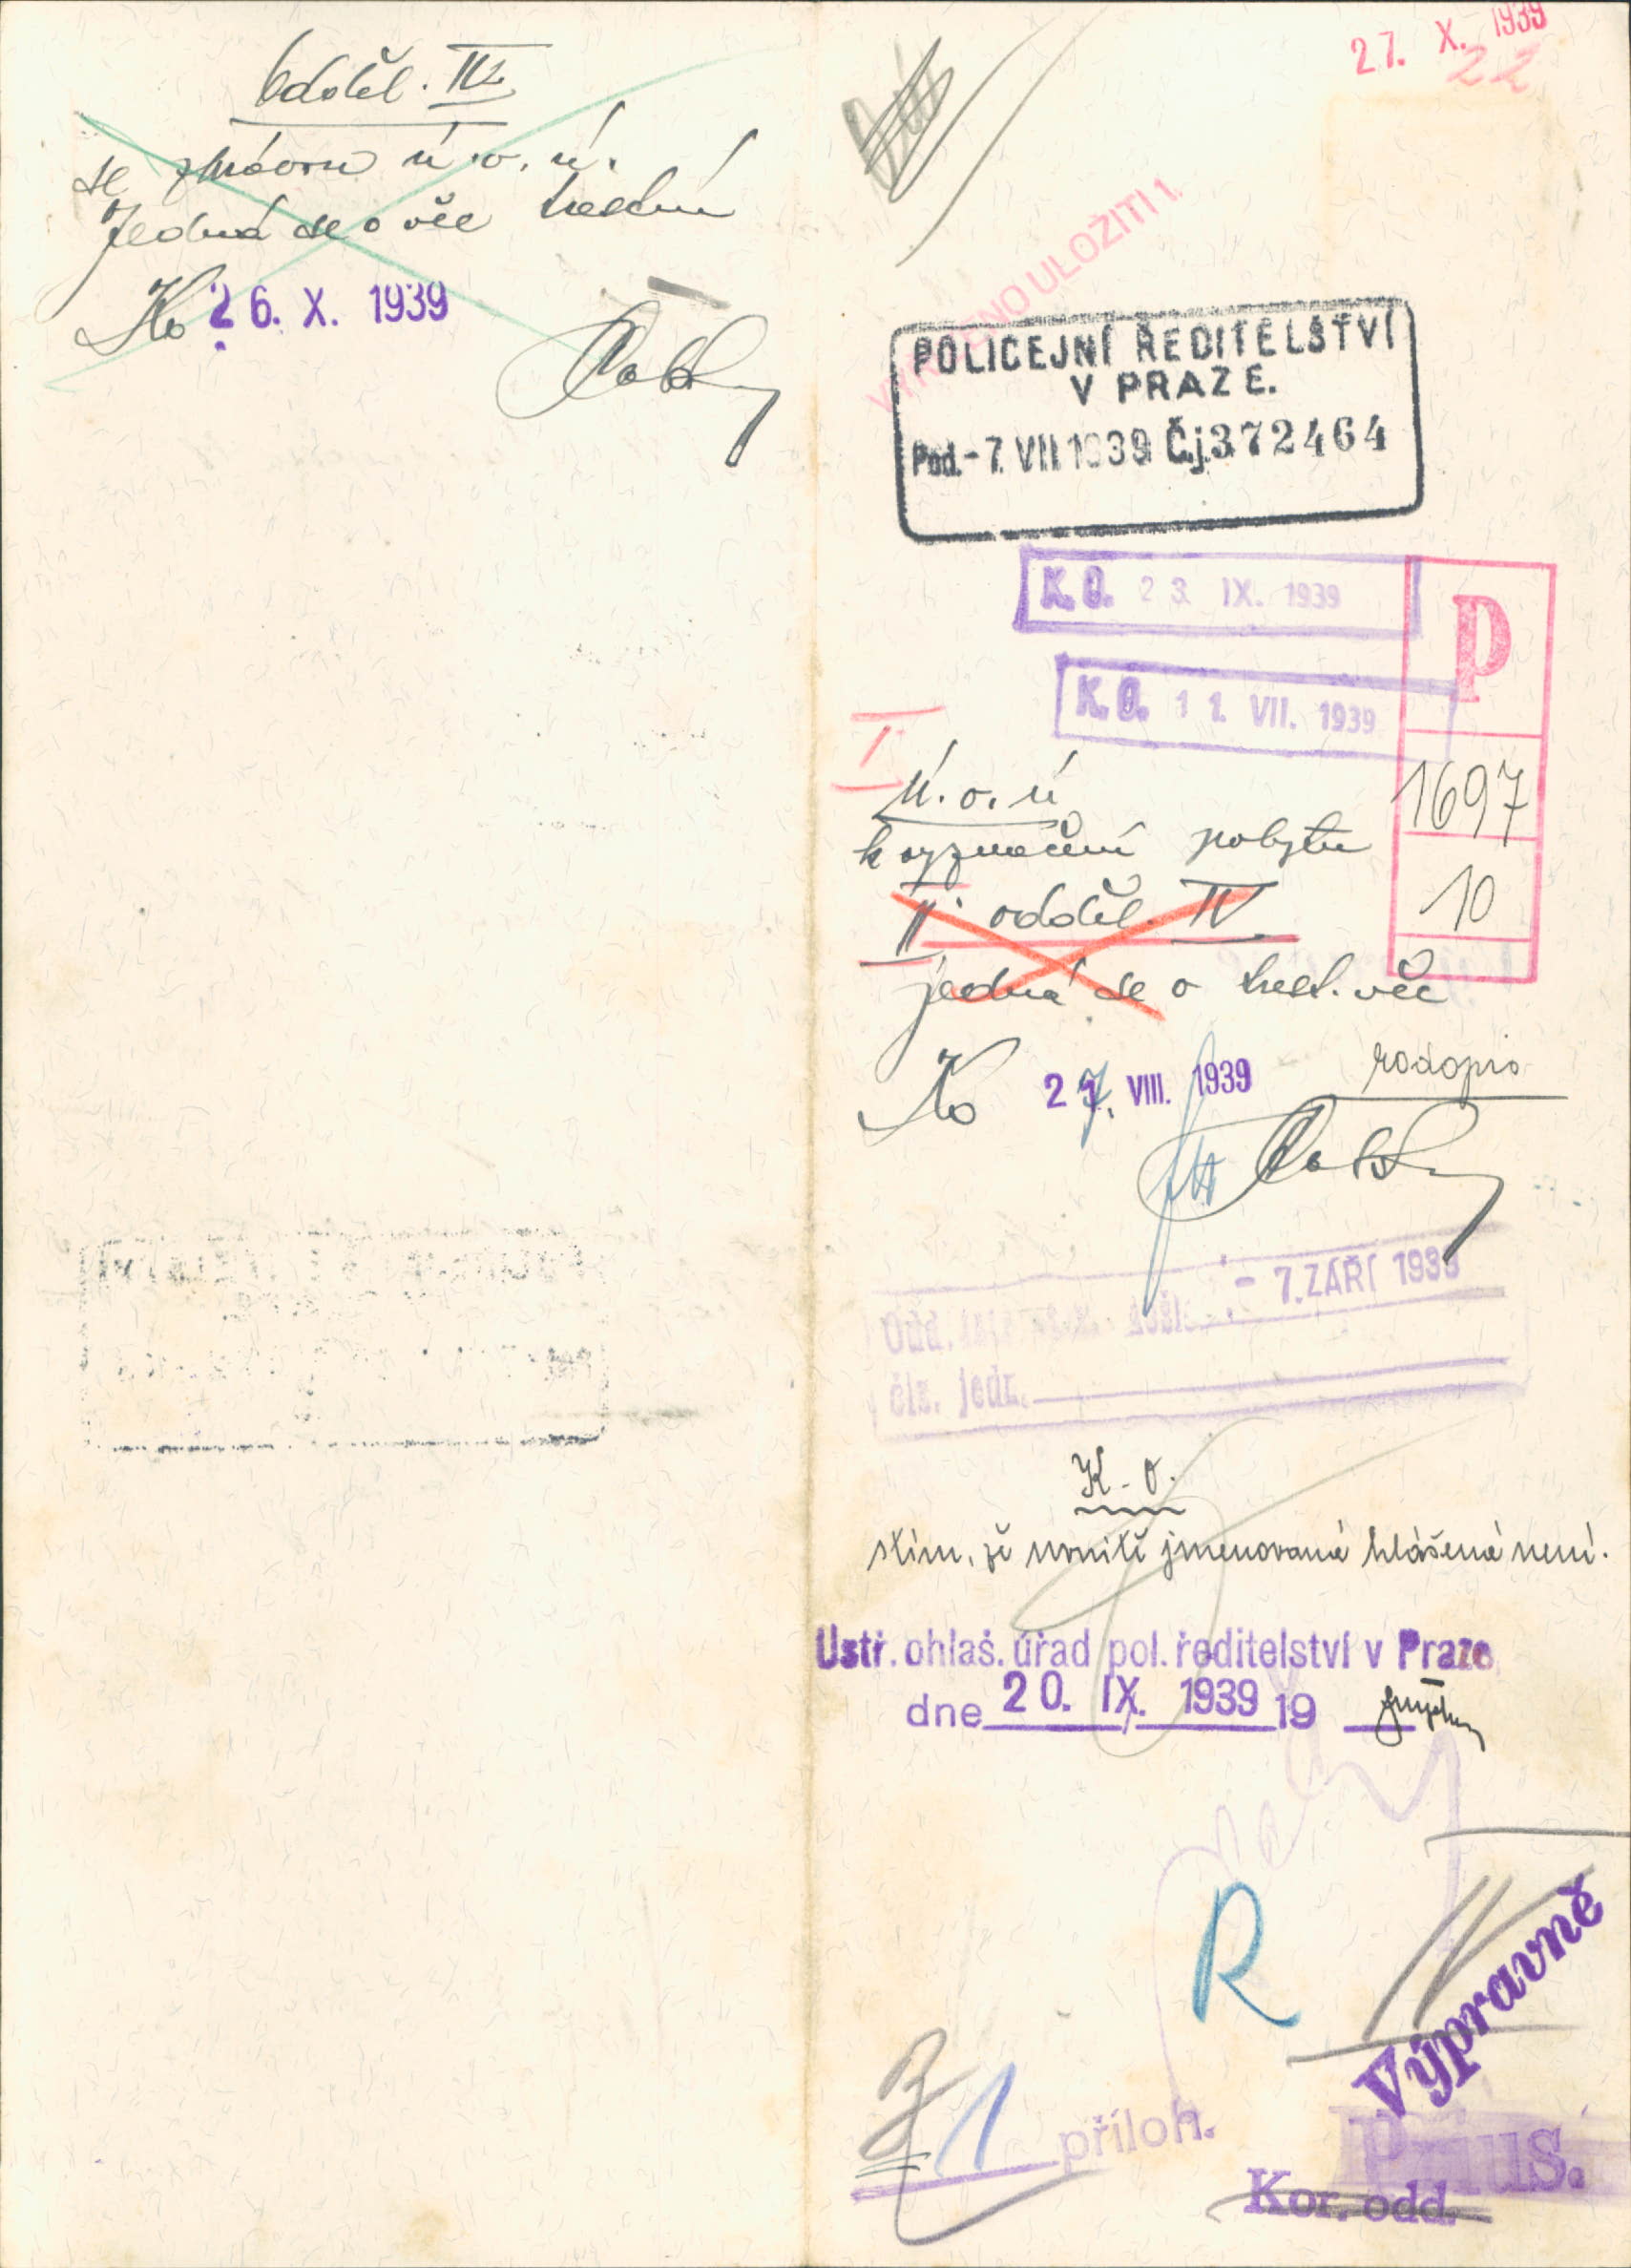 Odděl. IV.
se zprávou ú. o. ú.
Jedná se o věc trestní
Ko 26. X. 1939
27. X. 1939
22
ULOŽITI 1.
POLICEJNÍ ŘEDITELSTVÍ
V PRAZE.
Pod. - 7. VII 1939 Č.j. 372464
K. O. 23. IX. 1939
P
K. O. 11. VII. 1939
1697
10
I.
Ú. o. ú
k vyznačení pobytu
II. odděl. IV
jedná se o trest. věc
rodopis
Ko 27. VIII. 1939
- 7. ZÁŘÍ 1939
Odd.
čís. jedn.
K. O.
s tím, že uvnitř jmenovaná hlášena není.
Ustř. ohlaš. úřad pol. ředitelství v Praze
dne 20. IX. 1939 19
R
Výpravně
1 příloh.
Prius.
Kor. odd.